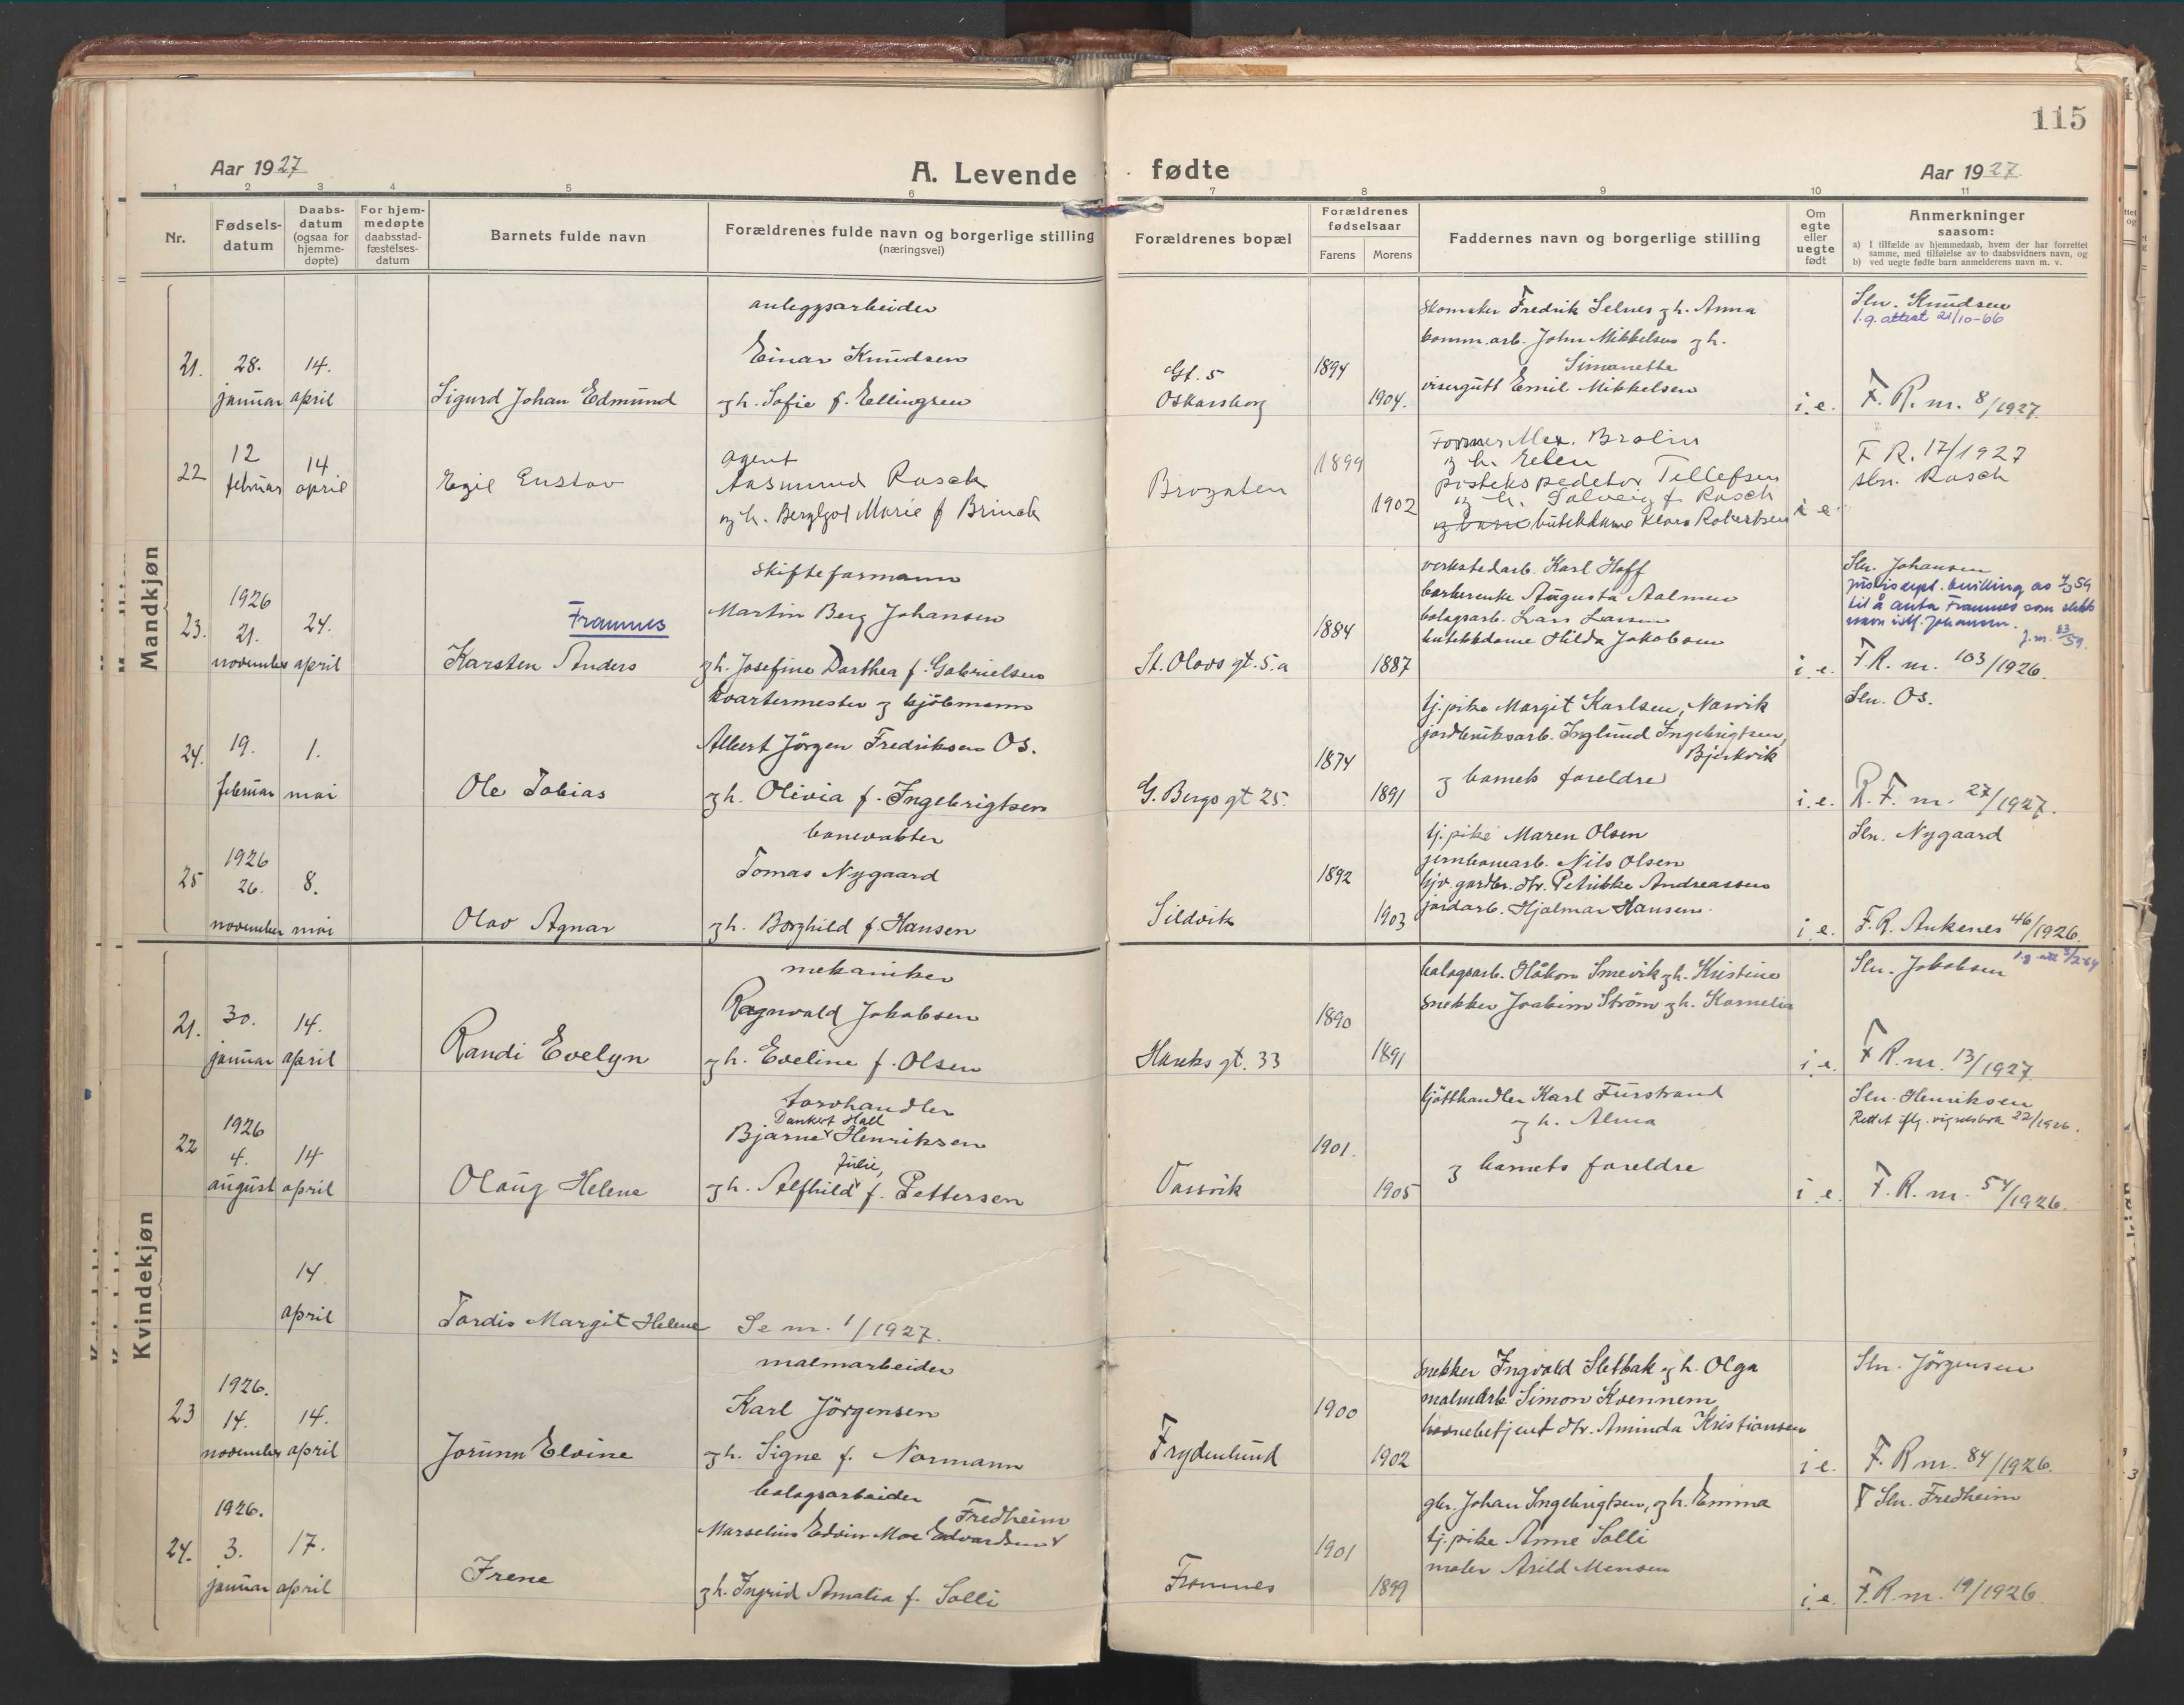 115
Aar 1927
A. Levende fødte
Aar 1927
1 2 3 4 5 6 7 8 9 10 11
Nr.
Fødsels-
datum
Daabs-
datum
(ogsaa for
hjemme-
døpte)
For hjem-
medøpte
daabsstad-
fæstelses-
datum
Barnets fulde navn
Forældrenes fulde navn og borgerlige stilling
(næringsvei)
Forældrenes bopæl
Forældrenes
fødselsaar
Farens Morens
Faddernes navn og borgerlige stilling
Om
egte
eller
uegte
født
Anmerkninger
saasom:
a) I tilfælde av hjemmedaab, hvem der har forrettet
samme, med tilføielse av to daabsvidners navn, og
b) ved uegte fødte barn anmelderens navn m. v.
Mandkjøn
21.
28.
januar
14.
april
Sigurd Johan Edmund
anleggsarbeider
Einar Knudsen
og h. Sofie f. Ellingsen
Gt. 5
Oskarsborg
1894
1904.
Skomaker Fredrik Selnes og h. Anna
komm.arb. John Mikkelsen og h.
Simonette
visergutt Emil Mikkelsen
i. e.
Sln. Knudsen
f.g. attest 21/10-66
F. R. nr. 8/1927.
22
12
februar
14
april
Egil Gustav
agent
Aasmund Rasch
og h. Bergljot Marie f Brinck
Brogaten
1899
1902
Alex. Brolin
og h. Ellen
postekspeditør Tellefsen
og h. Solveig f. Rasch
butikkdame Klara Robertsen
i e.
F R. 17/1927
sln. Rasch
23.
1926
21.
november
24.
april
Framnes
Karsten Anders
skifteformann
Martin Berg Johansen
og h. Josefine Dorthea f. Gabrielsen
St. Olavs gt. 5.a
1884
1887
verkstedarb. Karl Hoff
Augusta Aalmen
bolagsarb. Lars Larsen
butikkdame Hilda Jakobsen
i. e.
Sln. Johansen
justisdept. bevilling av
til å anta Framnes som slekts
navn istf. Johansen.
F.R. nr. 103/1926.
24.
19.
februar
1.
mai
Ole Tobias
kvartermester og kjöbmann
Albert Jörgen Fredriksen Os.
og h. Olivia f. Ingebrigtsen
G. Bergs gt 25.
1874
1891
tj.pike Margit Karlsen, Narvik
jordbruksarb. Inglund Ingebrigtsen,
Bjerkvik
og barnets foreldre
i. e.
Sln. Os.
R. F. nr. 27/1927.
25
1926
26.
november
8.
mai
Olav Agnar
banevakter
Tomas Nygaard
og h. Borghild f. Hansen
Sildvik
1892
1903
tj.pike Maren Olsen
jernbanearb. Nils Olsen
gardbr. dtr. Petrikke Andreassen
jordarb. Hjalmar Hansen.
i. e.
Sln. Nygaard
F. R. Ankenes 46/1926.
Kvindekjøn
21.
30.
januar
14.
april
Randi Evelyn
mekaniker
Ragnvald Jakobsen
og h. Eveline f. Olsen
Hareks gt. 33
1890
1891
bolagsarb. Håkon Smevik og h. Kristine
snekker Joakim Ström og h. Kornelia
i. e.
Sln. Jakobsen
F R. nr. 13/1927.
22
1926
4.
august
14
april
Olaug Helene
torvhandler
Dankert Hall
Bjarne Henriksen
Julie,
og h. Alfhild f. Pettersen
Vassvik
1901.
1905
kjötthandler Karl Furstrand
og h. Alma
og barnets foreldre
i e.
Sln. Henriksen
Rettet iflg. vigselsbok 22/1926.
F. R. nr. 54/1926.
14
april
Tordis Margit Helene
Se nr. 1/1927.
23
1926.
14.
november
14.
april
Jorunn Elvine
malmarbeider
Karl Jörgensen
og h. Signe f. Normann
Frydenlund
1900
1902
snekker Ingvald Sletbak og h. Olga
malmarb. Simon Kvennem
havnebetjent dtr. Aminda Kristiansen
i e.
Sln. Jörgensen
F. R nr. 84/1926.
24.
1926.
3.
januar
17.
april
Irene
bolagsarbeider
Fredheim
Marselius Edvin Moe Edvardsen
og h. Ingrid Amalia f. Solli
Framnes
1901
1899
gbr. Johan Ingebrigtsen, og h. Emma
tj.pike Anne Solli
maler Arild Monsen
i. e.
Sln. Fredheim
F. R. nr. 19/1926.